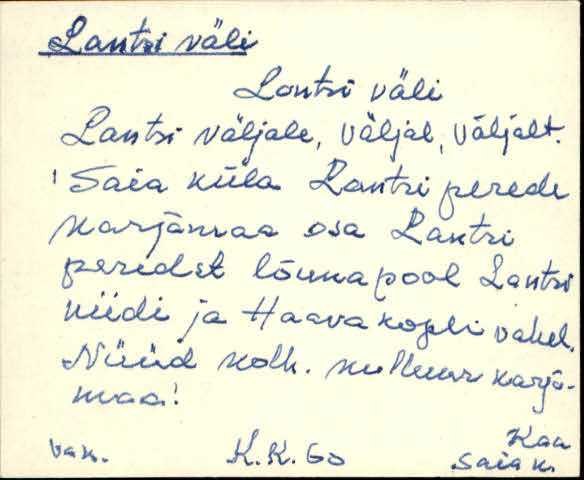 Lantsi väli
Lontsi väli
Lantsi väljale, väljal, väljalt.
! Saia küla Lantsi perede
karjamaa osa Lantsi
peredst lõunapool Lantsi
niidi ja Haavakopli vahel.
Nüüd kolh. kultuur karja-
maa!
Vak. K.K. 60 Kaa
Saia k.